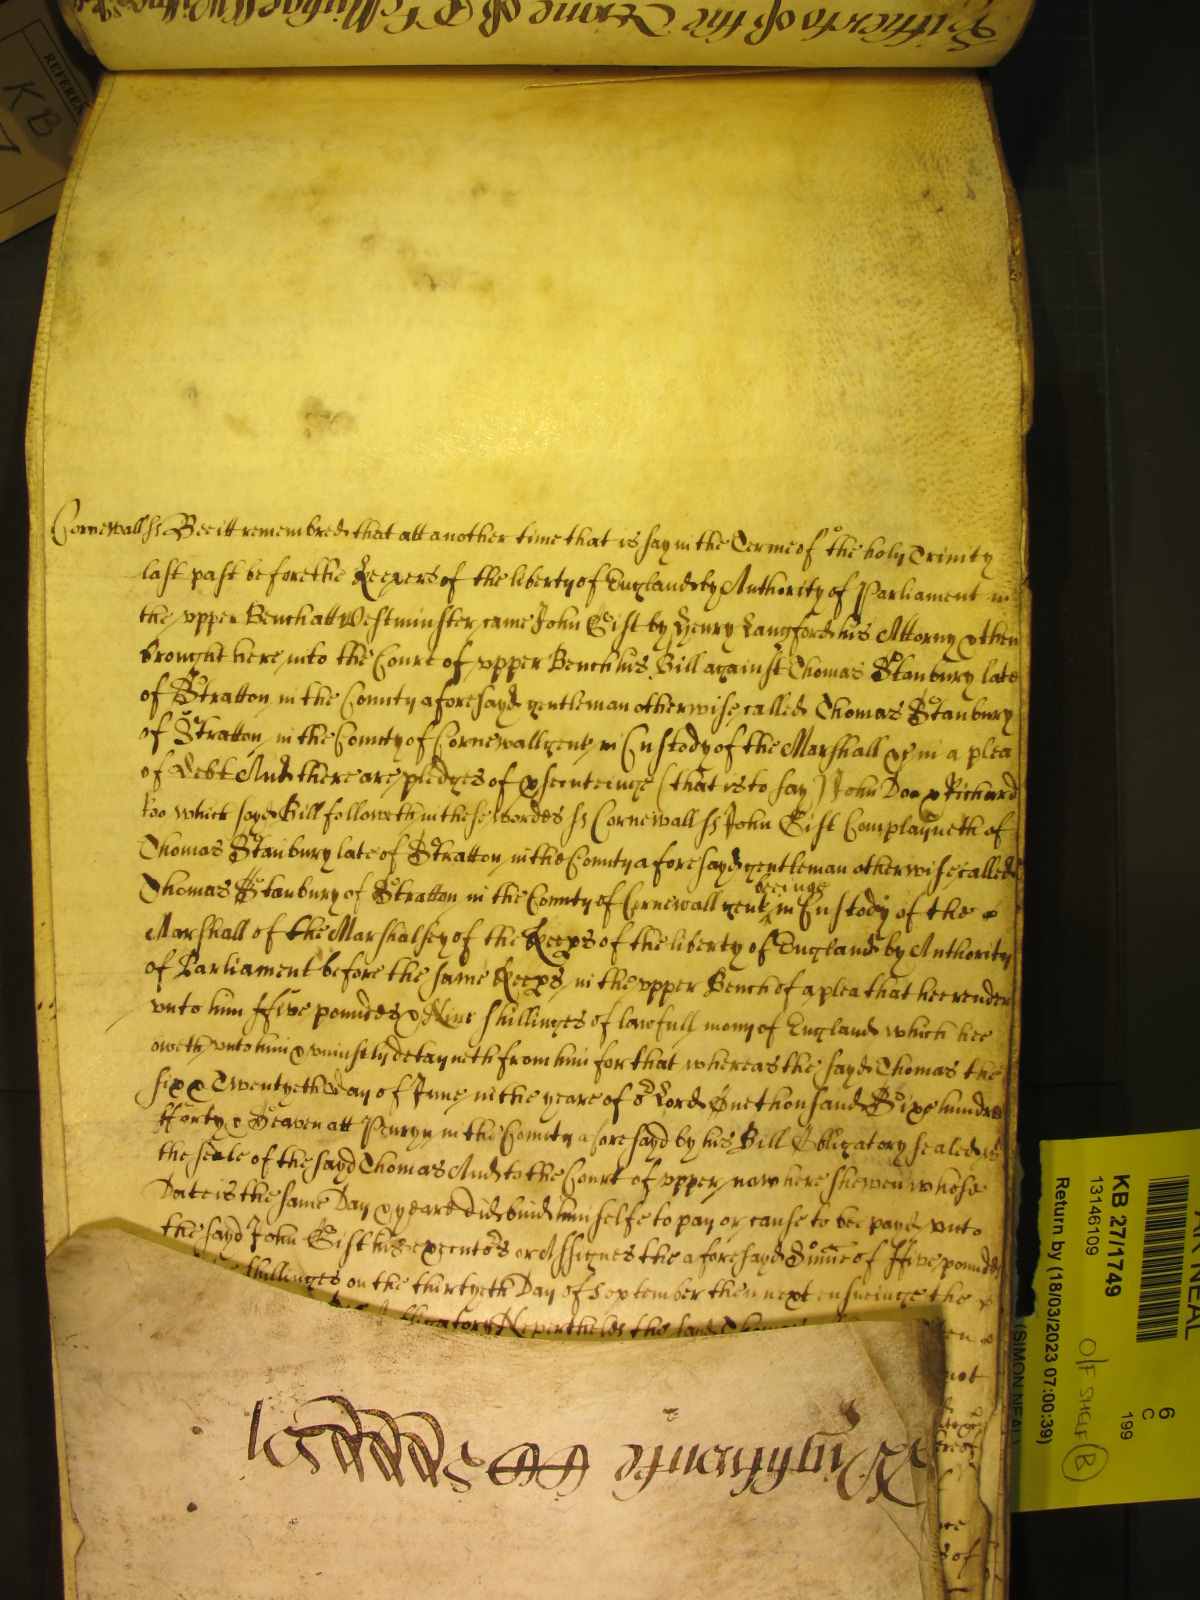 Hitherto of the Terme of St Michaell
REFEREN
KB
7
Cornewall ss Bee itt remembred that att another time that is say in the Terme of the holy Trinity
last past before the Keepers of the liberty of England by Authority of Parliament in
the upper Bench att Westminster came John Gist by Henry Langford his Attorny & then
brought here into the Court of upper Bench his Bill against Thomas Stanbury late
of Stratton in the County aforesayd gentleman otherwise called Thomas Stanbury
of Stratton in the County of Cornewall gent in Custody of the Marshall &c in a plea
of debt And there are pledges of &secuteinge (that is to say) John Doo & Richard
Roo which sayd Bill followeth in these wordes ss Cornewall ss John Gist Complayneth of
Thomas Stanbury late of Stratton in the County aforesayd gentleman otherwise called
Thomas Stanbury of Stratton in the County of Cornewall gent beeinge in Custody of the
Marshall of the Marshalsey of the Keeps of the liberty of England by Authority
of Parliament before the same Keeps in the upper Bench of a plea that hee render
unto him ffive poundes & Nine shillinges of lawfull mony of England which hee
oweth unto him & uniustly detayneth from him for that whereas the sayd Thomas the
six & Twentyeth day of June in the yeare of or Lord One thousand Sixe hundred
fforty & Seaven att Penryn in the County aforesayd by his Bill Obligatory sealed wth
the seale of the sayd Thomas And to the Court of upper now here shewen whose
Date is the same Day & yeare did bind himselfe to pay or cause to bee payd unto
the sayd John Gist his executors or Assignes the aforesayd Summe of ffive poundes
shillinges on the thirtyeth Day of September then next ensueinge the
obligatory Neverthelesse the sayd Thomas
not
of
KB 27/1749
13146109
Return by (18/03/2023 07:00:39)
(SIMON NEAL)
O/F SHELF B
6
C
199